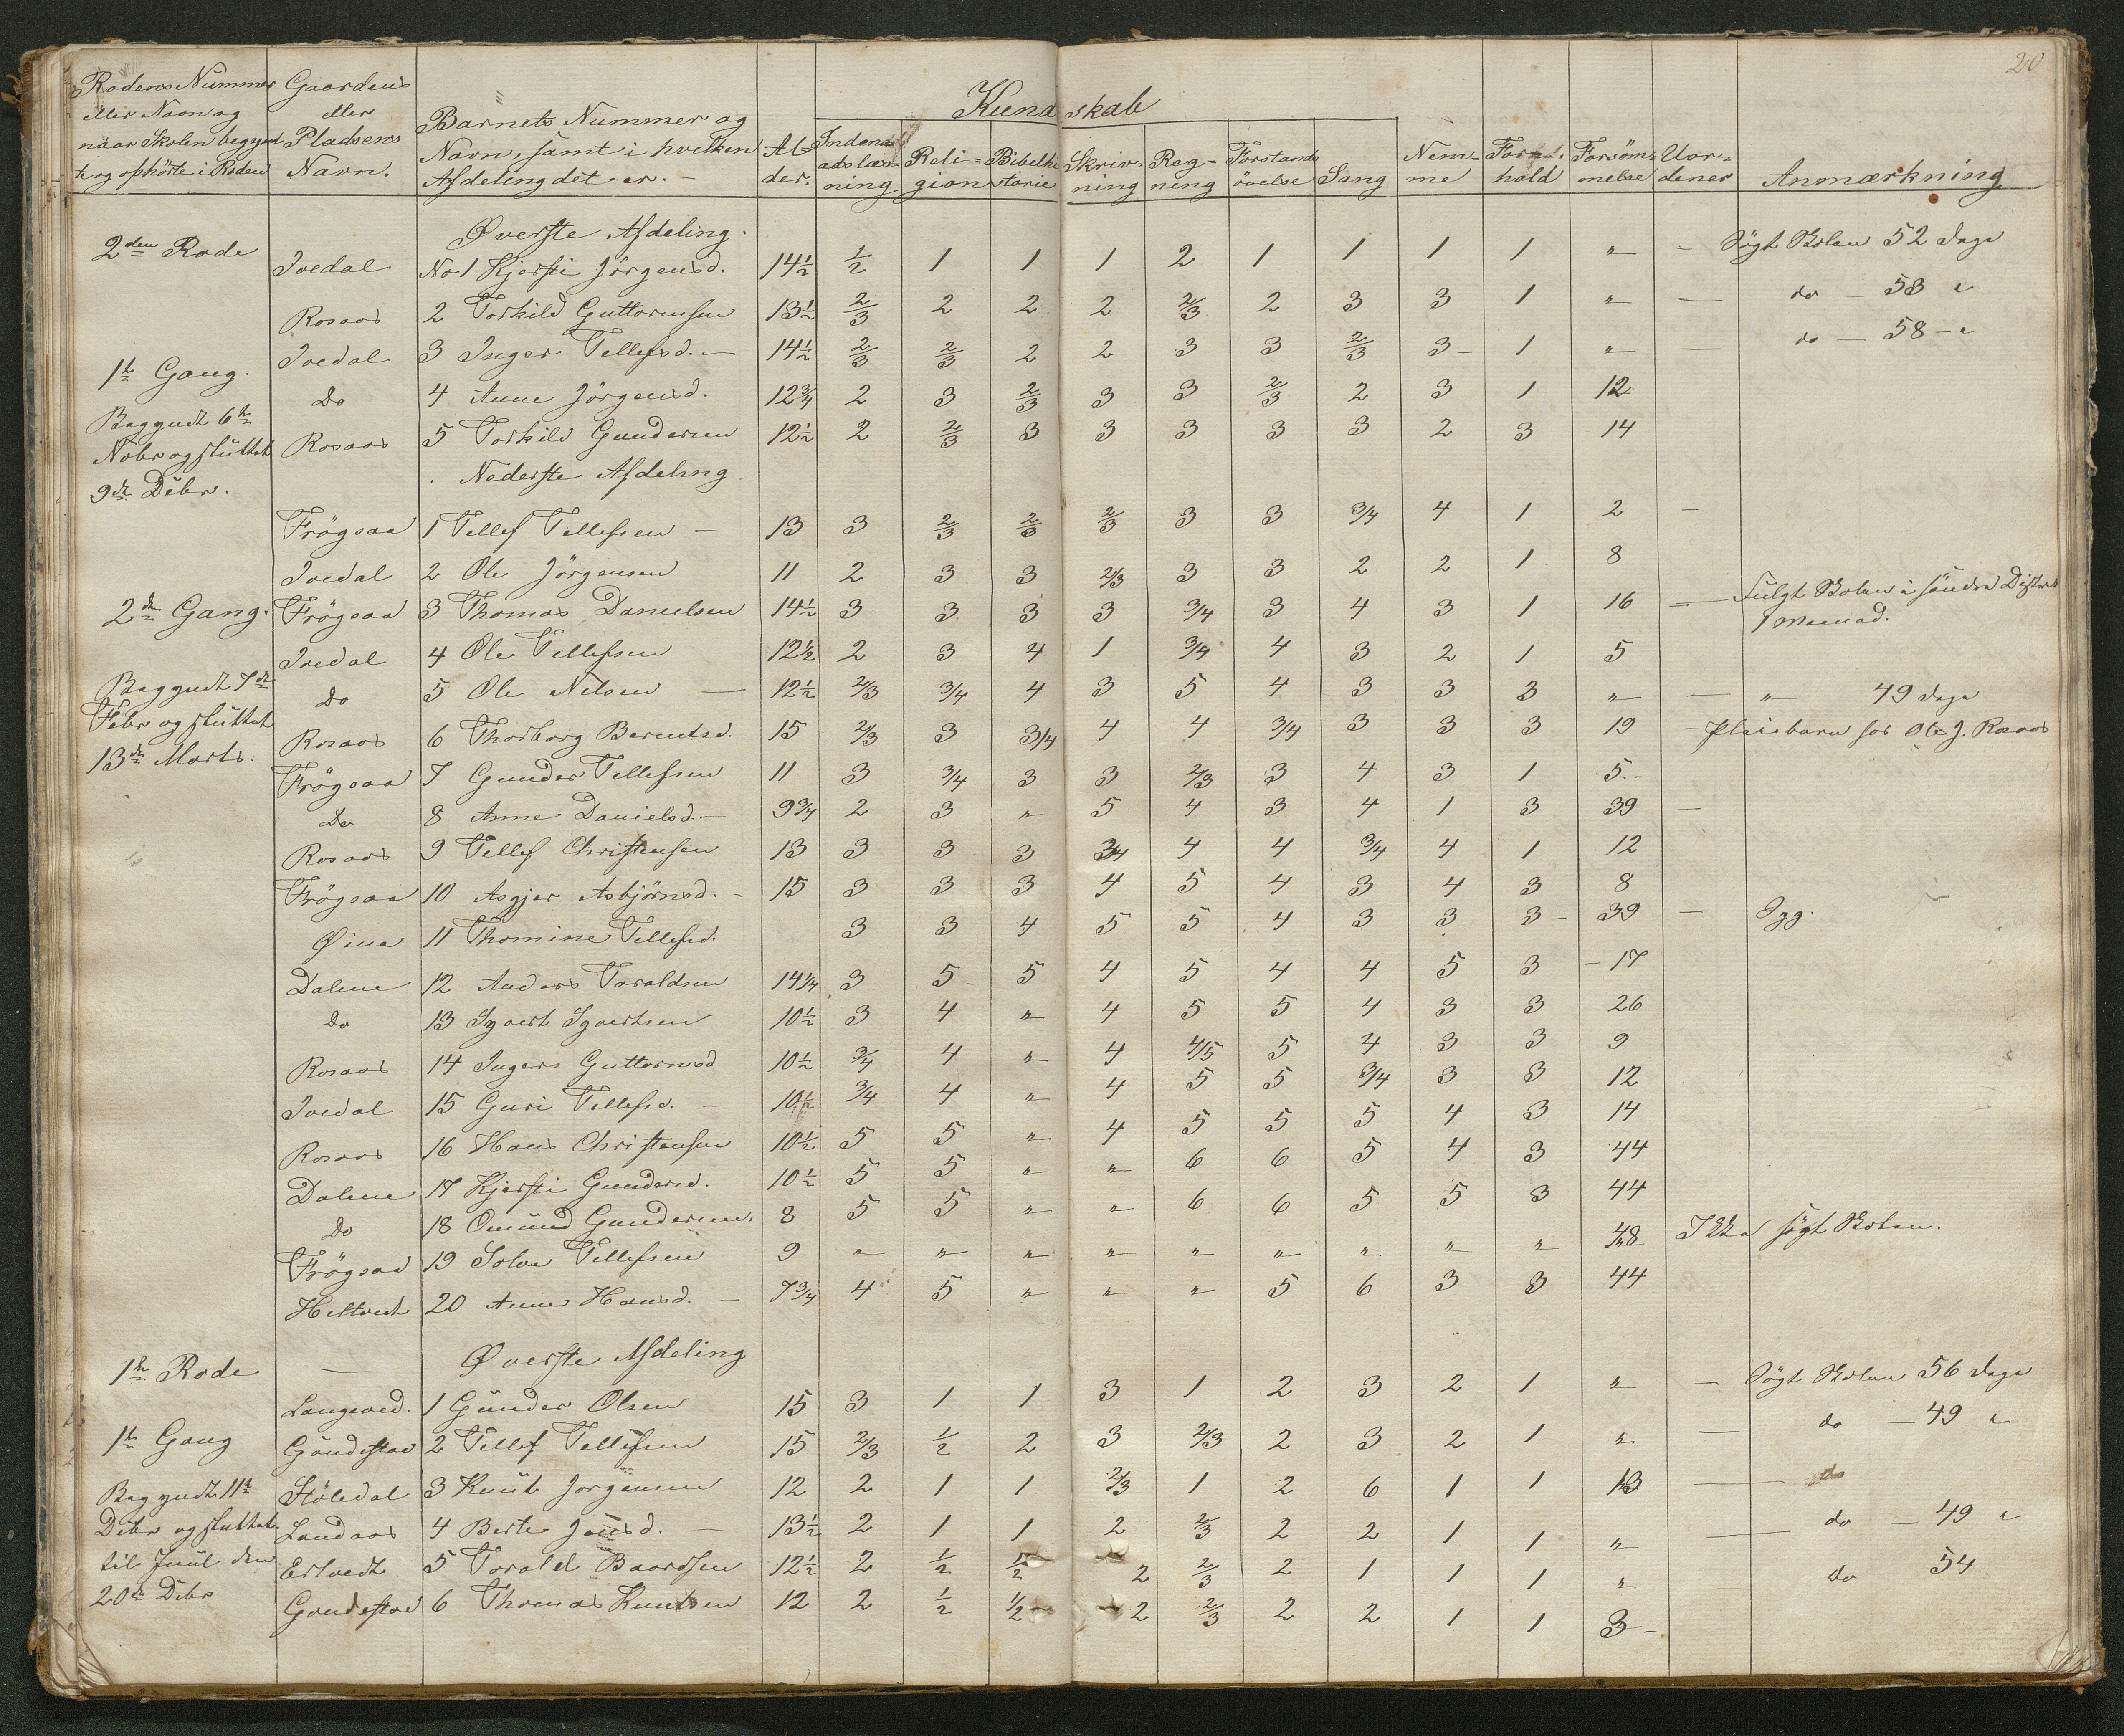 20
Rodens Nummer eller Navn og naar Skolen begyndte og ophörte i Roden
Gaardens eller Pladsens Navn.
Barnets Nummer og Navn, samt i hvilken Afdeling det er. -
Al-der.
Kundskab
Indenadslæsning
Reli=gion
Bibelhistorie
Skriv=ning
Reg=ning
Forstands övelse
Sang
Nem=me
For=hold
Forsöm=melse
Uor=dener
Anmærkning
Øverste Afdeling.
2den Rode Ivedal No 1 Kjersti Jörgensd. 14½ ½ 1 1 1 2 1 1 1 1 " - Sögt Skolen 52 Dage
Rosaas 2 Torkild Guttormsen 13½ 2/3 2 2 2 2/3 2 3 3 1 " — do - 58 "
1te Gang. Ivedal 3 Inger Tellefsd. — 14½ 2/3 2/3 2 2 3 3 2/3 3 - 1 " — do — 58 - "
Do 4 Anne Jörgensd. 12¾ 2 3 2/3 3 3 2/3 2 3 1 12
Begyndt 6te
Novbr og sluttet Rosaas 5 Torkild Gundersen 12½ 2 2/3 3 3 3 3 3 2 3 14
9de Debr. Nederste Afdeling
Frögsaa 1 Tellef Tellefsen — 13 3 2/3 2/3 2/3 3 3 3/4 4 1 2 -
Ivedal 2 Ole Jörgensen 11 2 3 3 2/3 3 3 2 2 1 8
2den Gang. Frögsaa 3 Thomas Danielsen 14½ 3 3 3 3 3/4 3 4 3 1 16 — Fulgt Skolen i söndre Distrikt
1 Maanad.
Ivedal 4 Ole Tellefsen 12½ 2 3 4 1 3/4 4 3 2 1 5
Begyndt 7de Do 5 Ole Nilsen — 12½ 2/3 3/4 4 3 5 4 3 3 3 " — " 49 dage
Febr og sluttet
13de Marts. Rosaas 6 Thorborg Berentsd. 15 2/3 3 3/4 4 4 3/4 3 3 3 19 - Pleiebarn hos Ole J. Rosaas
Frögsaa 7 Gunder Tellefsen 11 3 3/4 3 3 2/3 3 4 3 1 5. -
Do 8 Anne Danielsd. — 9¾ 2 3 " 5 4 3 4 1 3 39 -
Rosaas 9 Tellef Christensen 13 3 3 3 3/4 4 4 3/4 4 1 12
Frögsaa 10 Asgjer Asbjörnsd. - 15 3 3 3 4 5 4 3 4 3 8
Øina 11 Thomine Tellefsd. 3 3 4 5 5 4 3 3 3 - 39 -
Dalene 12 Anders Toraldsen 14¼ 3 5 - 5 4 5 4 4 5 3 - 17
Do 13 Syvert Syvertsen 10½ 3 4 " 4 5 5 4 3 3 26
Rosaas 14 Inger Guttormsd 10½ 3/4 4 " 4 4/5 5 4 3 3 9
Ivedal 15 Guri Tellefsd. - 10½ 3/4 4 " 4 5 5 3/4 3 3 12
Rosaas 16 Hans Christensen 10½ 5 5 " 4 5 5 5 4 3 14
Dalene 17 Kjersti Gundersd. 10½ 5 5 " " 6 6 5 4 3 44
Do 18 Omund Gundersen. 8 5 5 " " 6 6 5 5 3 44
Frögsaa 19 Solve Tellefsen 9 " " " " " " " " " 48 Ikke sögt Skolen.
Heltvedt 20 Anne Hansd. — 7¾ 4 5 " " " 5 6 3 3 44
1te Rode — Øverste Afdeling
Langeved. 1 Gunder Olsen 15 3 1 1 3 1 2 3 2 1 " - Sögt Skolen 56 dage
1te Gang Göndestad 2 Tellef Tellefsen 15 2/3 ½ 2 3 2/3 2 3 2 1 " — do - 49 "
Begyndt 11te Stöledal 3 Knut Jorgensen 12 2 1 1 2/3 1 2 6 1 1 13 — do
Debr og sluttet Landaas 4 Berte Jensd. — 13½ 2 1 1 2 2/3 2 2 1 1 " — do - 49 "
til Juul den Ertvedt 5 Torald Baardsen 12½ 2 ½ ½ 2 2/3 2 1 1 1 " do 54
20de Debr Gondestad 6 Thomas Knutsen 12 2 ½ ½ 2 2/3 2 2 1 1 3 -